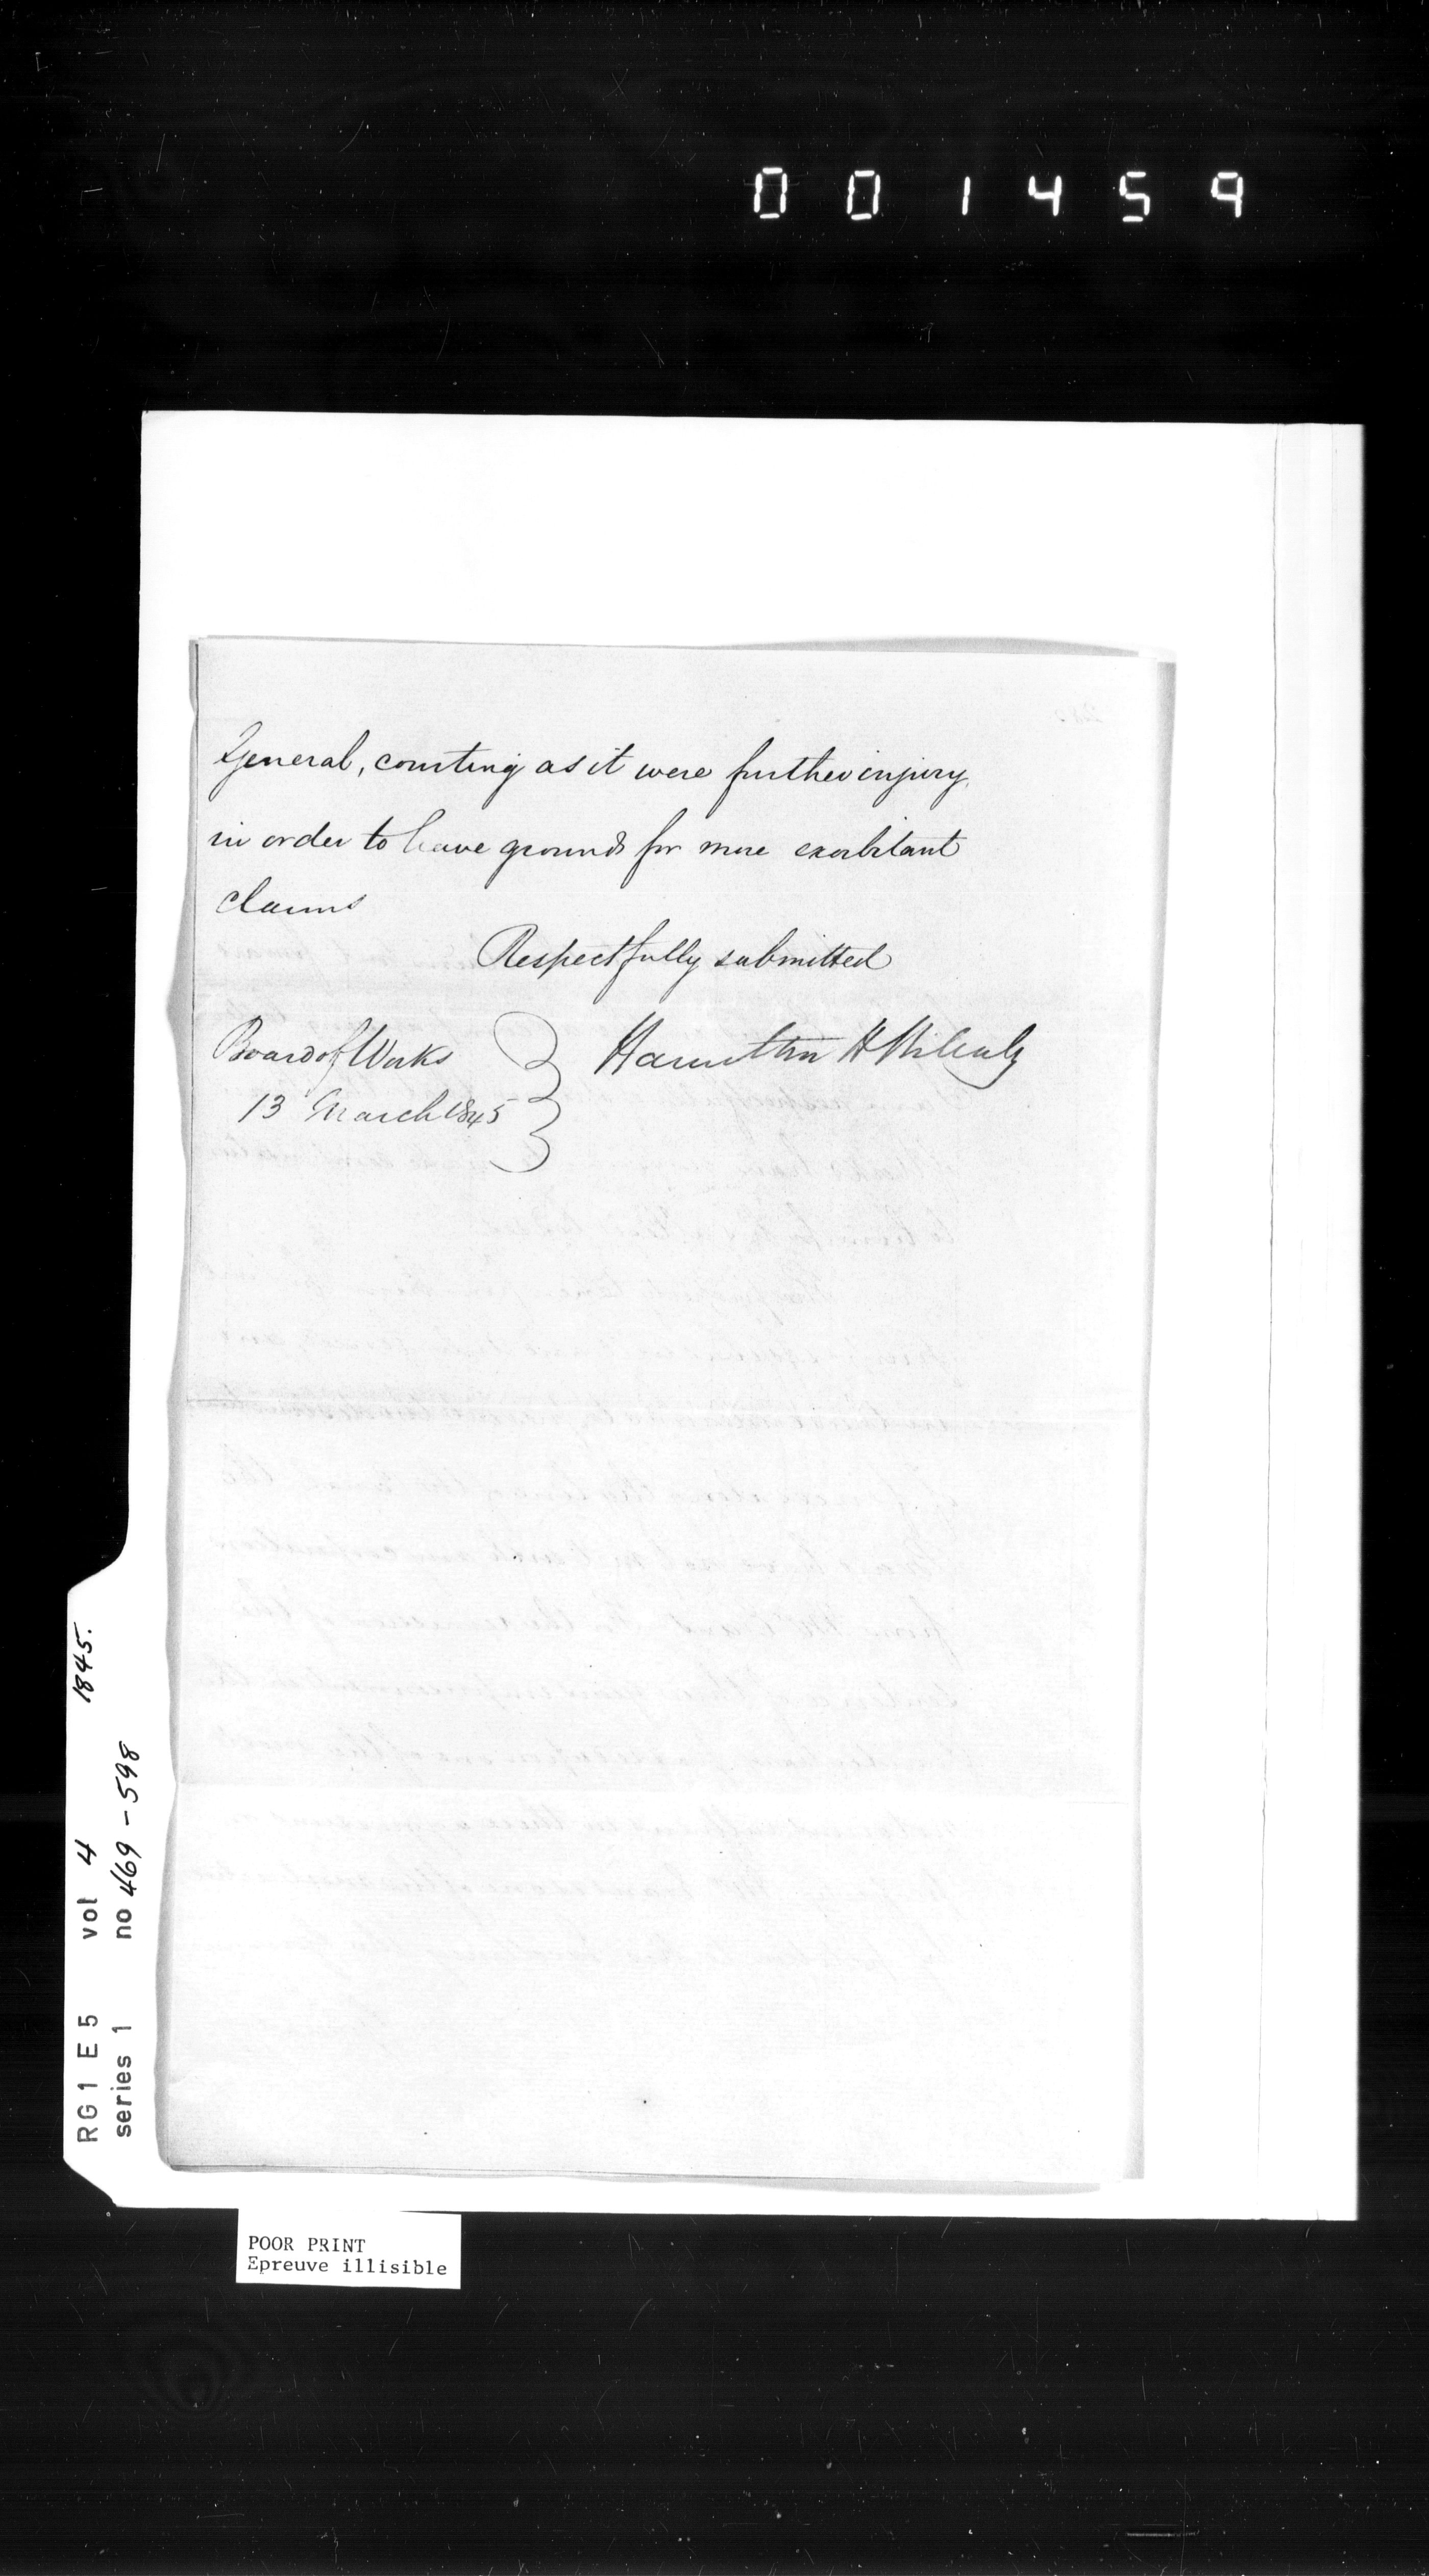 001459
General, courting as it were further injury,
in order to have grounds for more exorbitant
claims
Respectfully submitted
Board of Works
13 March 1845
Hamilton H Killaly
RG1 E5 vol 4 1845.
series 1 no 469-598
POOR PRINT
Epreuve illisible